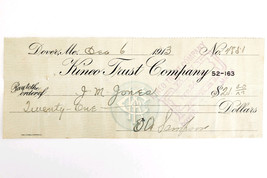 Dover, Me. Dec 6 1913 No.
Kineo Trust Company 52-163
Pay to the
order of J M Jones $21
Twenty One Dollars